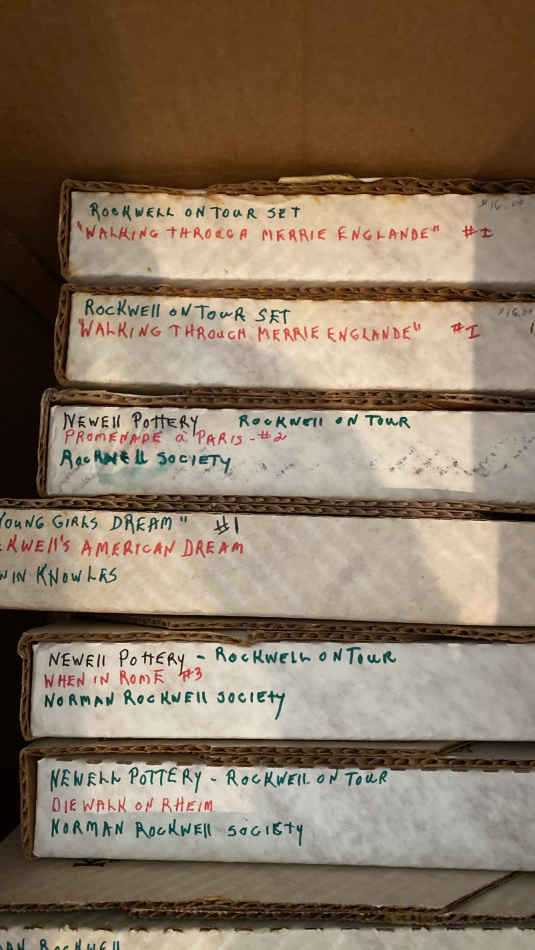 ROCKWELL ON TOUR SET $16.00
"WALKING THROUGH MERRIE ENGLANDE" #1
ROCKWELL ON TOUR SET
"WALKING THROUGH MERRIE ENGLANDE" #1
NEWELL POTTERY ROCKWELL ON TOUR
PROMENADE a PARIS - #2
ROCKWELL SOCIETY
YOUNG GIRLS DREAM" #1
CKWELL'S AMERICAN DREAM
WIN KNOWLES
NEWELL POTTERY - ROCKWELL ON TOUR
WHEN IN ROME #3
NORMAN ROCKWELL SOCIETY
NEWELL POTTERY - ROCKWELL ON TOUR
DIE WALK ON RHEIM
NORMAN ROCKWELL SOCIETY
AN ROCKWELL